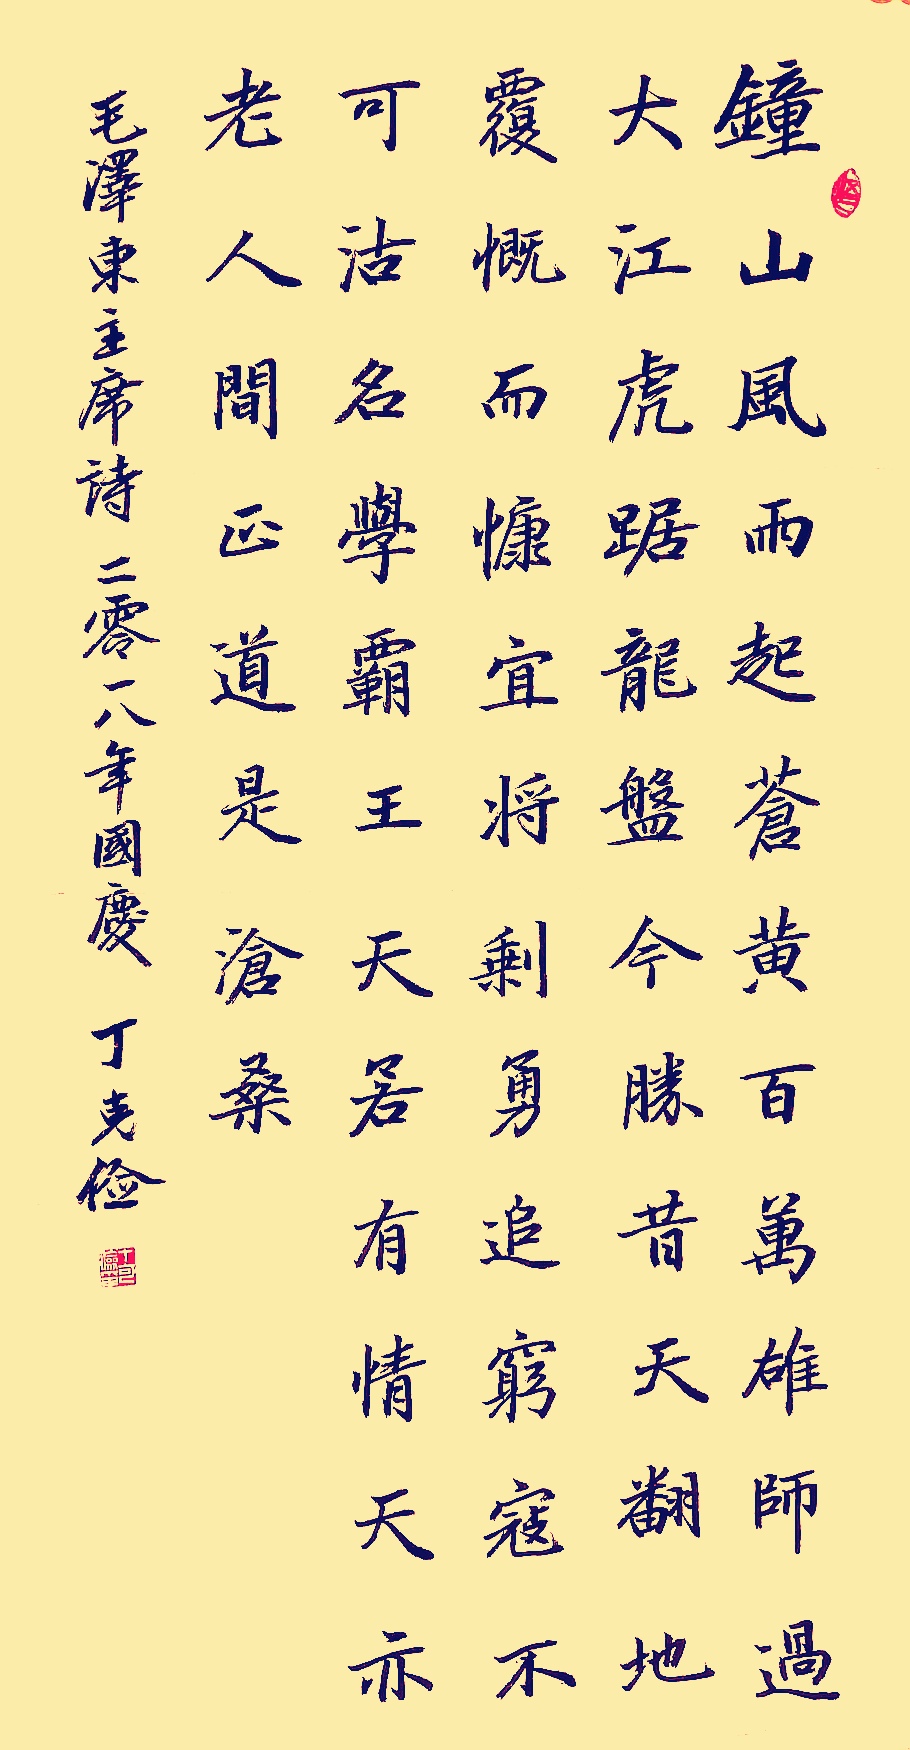 鐘山風雨起蒼黄百萬雄師過
大江虎踞龍盤今勝昔天翻地
覆慨而慷宜将剩勇追窮寇不
可沽名學霸王天若有情天亦
老人間正道是滄桑
毛澤東主席詩 二零一八年國慶 丁克儉